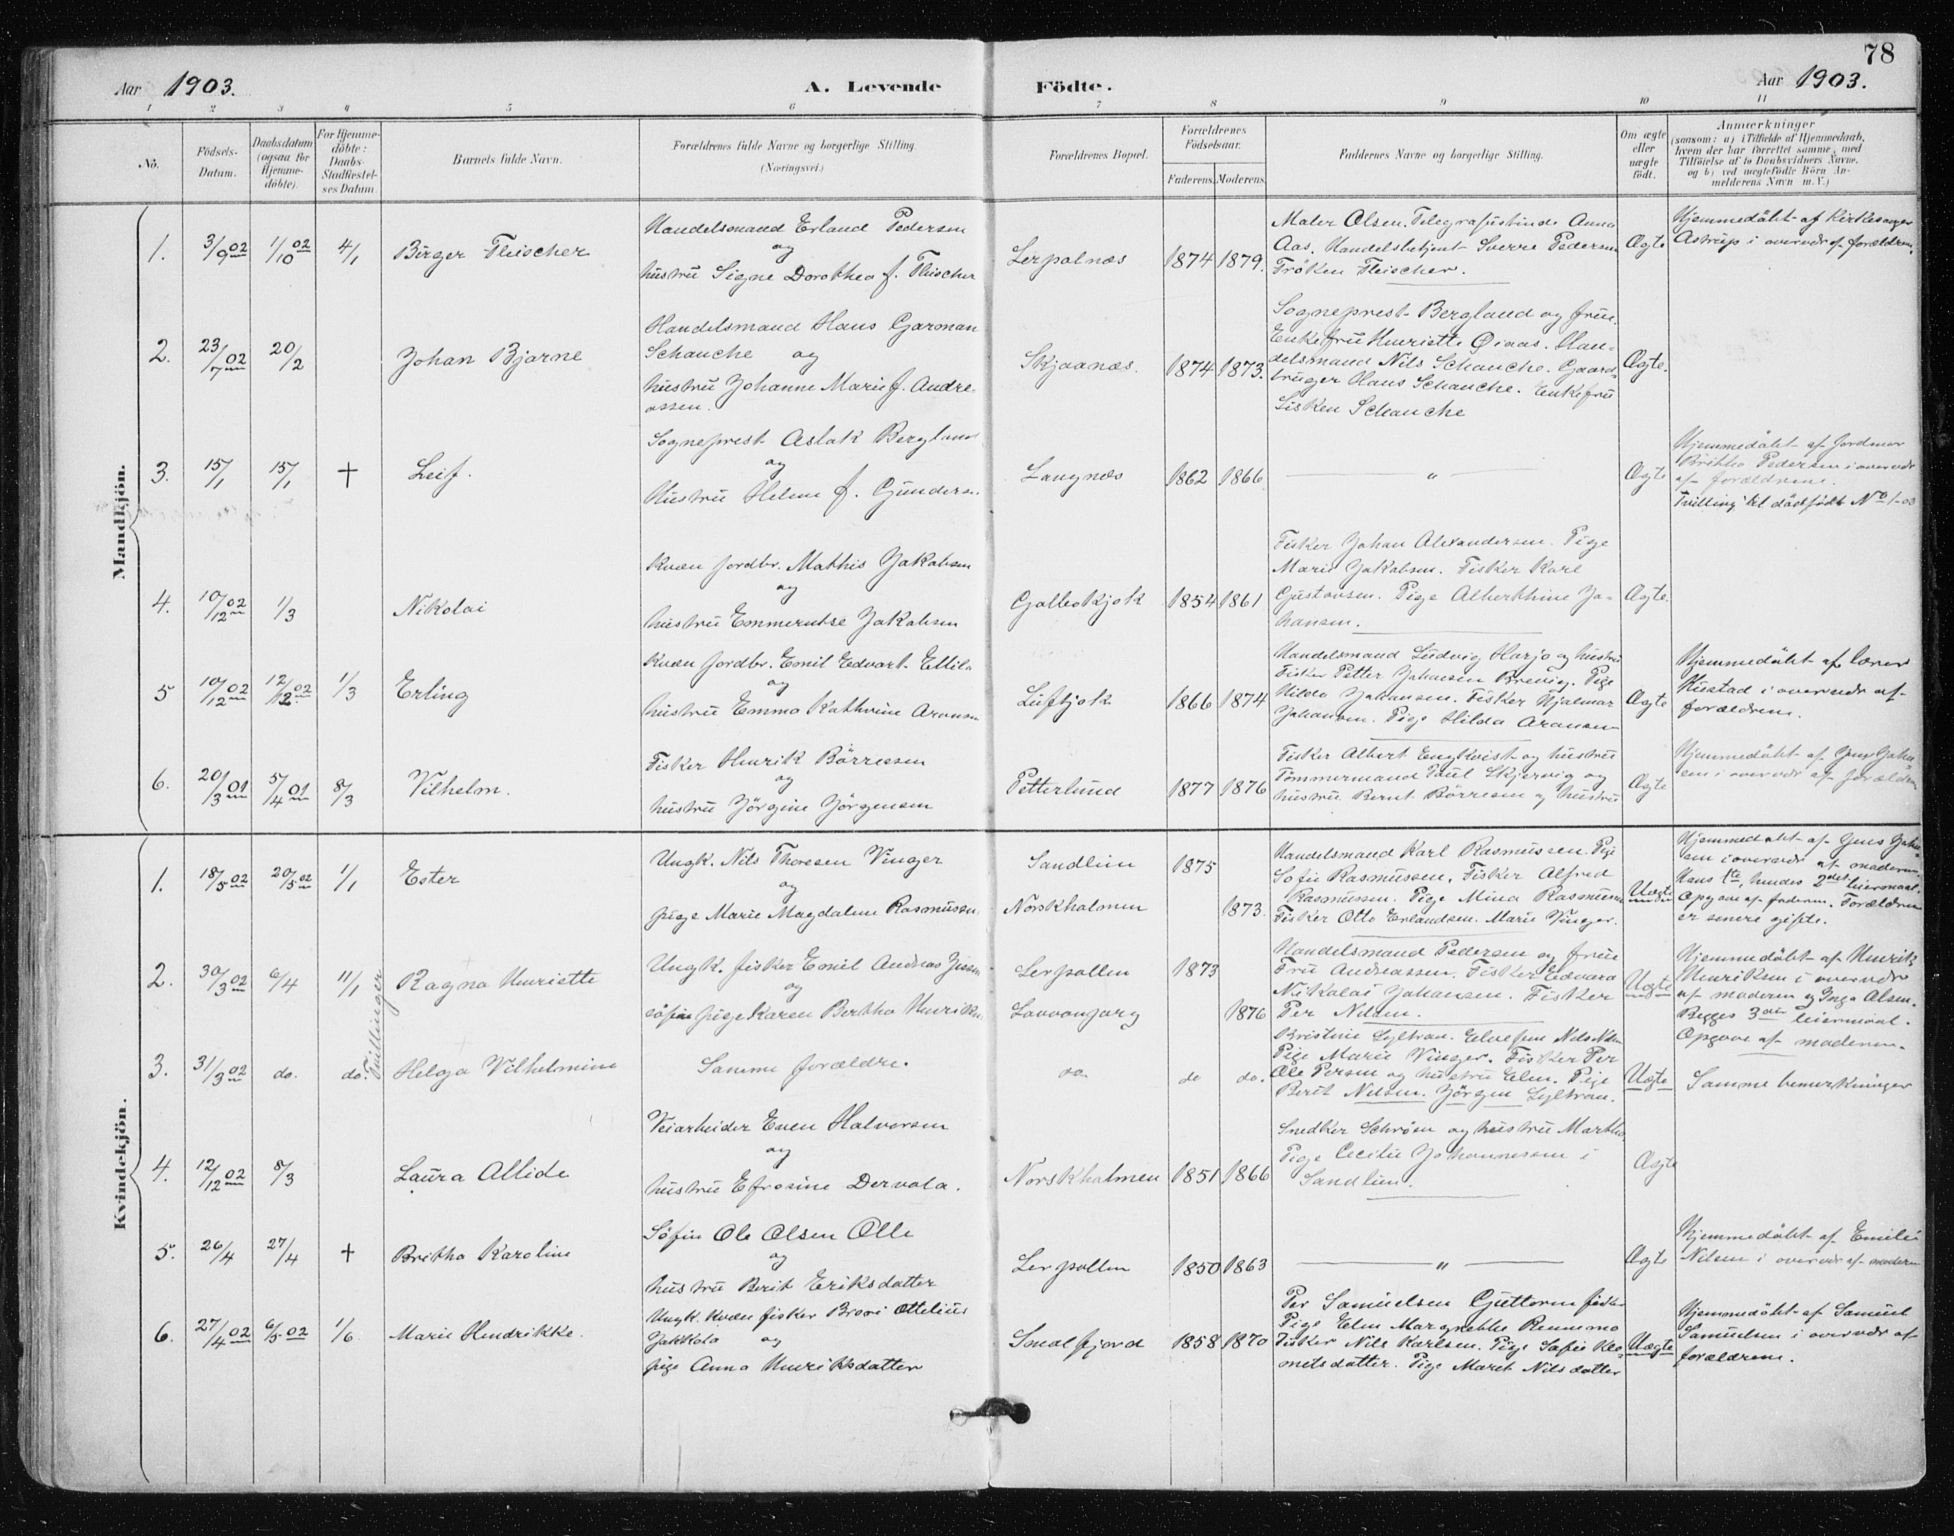 78
Aar 1903.
A. Levende Födte.
Aar 1903.
1 2 3 4 5 6 7 8 9 10 11
No.
Födsels-Datum.
Daabsdatum (ogsaa for Hjemmedöbte).
For Hjemmedöbte: Daabs-Stadfæstelses Datum.
Barnets fulde Navn.
Forældrenes fulde Navne og borgerlige Stilling. (Næringsvei.)
Forældrenes Bopæl.
Forældrenes Födselsaar.
Faderens. Moderens.
Faddernes Navne og borgerlige Stilling.
Om ægte eller uægte födt.
Anmærkninger
(saasom: a) i Tilfælde af Hjemmedaab, hvem der har forrettet samme, med Tilföielse af to Daabsvidners Navne, og b) ved uægtefödte Börn Anmelderens Navn m. V.)
Mandkjön.
1. 3/9 02 1/10 02 4/1 Birger Fleischer
Handelsmand Erland Pedersen
og
hustru Signe Dorothea f. Fleischer
Lerpolnæs 1874 1879.
Maler Olsen. Telegrafistinde Anna
Aas. Handelsbetjent Sverre Pedersen
Fröken Fleischer.
Ægte
Hjemmedöbt af Kirkesanger
Astrup i overvær af forældrene.
2. 23/7 02 20/2 Johan Bjarne
Handelsmand Hans Garman
Schanche og
hustru Johanne Marie f. Andre-
assen.
Skjaanæs. 1874 1873.
Sogneprest Bergland og frue.
Enkefru Henriette Öiaas. Han-
delsmand Nils Schanche. Gaard-
bruger Hans Schanche. Enkefru
Lisken Schanche
Ægte.
3. 15/1 15/1 † Leif.
Sogneprest Aslak Bergland
og
Hustru Helene f. Gundersen
Langnæs 1862 1866
"
Ægte
Hjemmedöbt af Jordmor
Britha Pedersen i overvær
af forældrene.
Tvilling til dödfödt No 1-03
4. 10/12 02 1/3 Nikolai
Kvæn jordbr. Mathis Jakobsen
og
hustru Emmerentse Jakobsen
Galbokjok 1854 1861
Fisker Johan Alexandersen. Pige
Marie Jakobsen. Fisker Karl
Gustavsen. Pige Alberthine Jo-
hansen.
Ægte.
5 10/12 02 12/12 02 1/3 Erling
Kvæn jordbr. Emil Edvart Ellila
og
hustru Emma Kathrine Aronsen
Luftjok 1866 1874
Handelsmand Ludvig Harjo og hustru
Fisker Petter Johansen Brevig. Pige
Hilda Johansen. Fisker Hjalmar
Johansen. Pige Hilda Aronsen
Ægte
Hjemmedöbt af lærer
Hustad i overvær af
forældrene.
6. 20/3 01 5/4 01 8/3 Vilhelm.
Fisker Henrik Börresen
og
hustru Jörgine Jörgensen
Petterlund 1877 1876
Fisker Albert Engkvist og hustru
Tömmermand Paul Skjervig og
hustru Bernt Börresen og hustru
Ægte
Hjemmedöbt af Jens Joha-
sen i overvær af forældrene
Kvindekjön.
1. 18/5 02 20/5 02 1/1 Ester
Ungk. Nils Thoresen Vinger
og
pige Marie Magdalene Rasmussen
Sandlien 1875
Norskholmen 1873.
Handelsmand Karl Rasmussen. Pige
Sofie Rasmussen. Fisker Alfred
Rasmussen. Pige Mina Rasmussen
Fisker Otto Erlandsen. Marie Vinger.
Uægte
Hjemmedöbt af Jens Joha-
sen i overvær af moderen.
Hans 1ste, hendes 2det leiermaal.
Opgave af faderen. Forældrene
er senere gifte.
2. 30/3 02 6/4 11/1 Ragna Henriette
Tvillinger
Ungk. fisker Emil Andreas Jessen
og
söfin pige Karen Bertha Henriksen
Lerpollen 1873
Lavvonjarg 1876
Handelsmand Pedersen og frue
Fru Andreassen. Fisker Edvard
Nikolai Johansen. Fisker
Per Nilsen.
Uægte
Hjemmedöbt af Henrik
Henriksen i overvær
af moderen og Inga Olsen.
Begges 3die leiermaal.
Opgave af moderen.
3. 31/3 02 do. do. Helga Vilhelmine
Samme forældre.
do do do.
Kristine Lyltran. Elvefin Nils Nilsen
Pige Marie Vinger. Fisker Per
Ole Persen og hustru Elen. Pige
Berit Nilsen. Jörgen Lyltran.
Uægte
Samme bemerkninger
4. 12/12 02 8/3 Laura Allide
Veiarbeider Even Halvorsen
og
hustru Efrosine Dervola.
Norskholmen 1851 1866
Snedker Schröen og hustru Martha
Pige Cecilie Johannessen i
Sandlien.
Ægte
5. 26/4 27/4 † Britha Karoline
Söfin Ole Olsen Olle
og
hustru Berit Eriksdatter
Lerpollen 1850 1863
"
Ægte
Hjemmedöbt af Emilie
Nilsen i overvær af moderen
6. 27/4 02 6/5 02 1/6 Marie Hendrikke.
Ungk. kvæn fisker Brori Ottelius
Jakkola og
pige Anna Henriksdatter
Smalfjord 1858 1870
Per Samuelsen Guttorm fisker
Pige Elen Margrethe Rennemo
Fisker Nils Karlsen. Pige Sofie Kle-
metsdatter. Pige Marit Nilsdatter
Uægte
Hjemmedöbt af Samuel
Samuelsen i overvær af
forældrene.